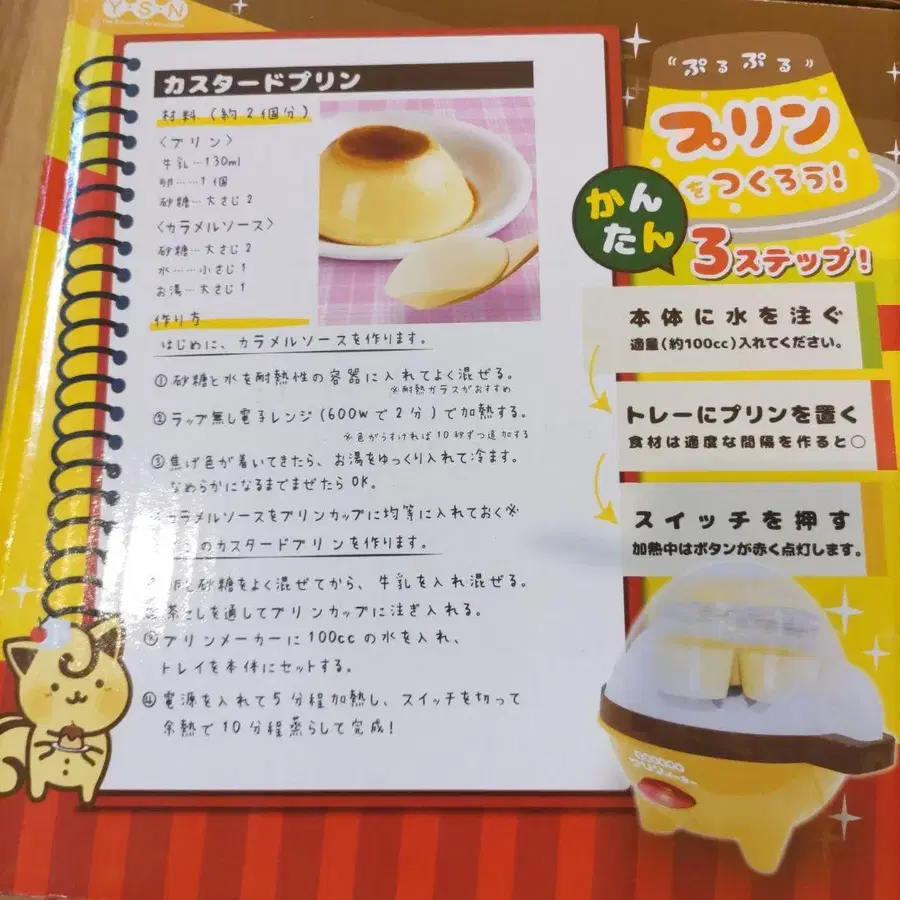 Y·S·N
カスタードプリン
材料(約2個分)
〈プリン〉
牛乳…130ml
卵……1個
砂糖…大さじ2
〈カラメルソース〉
砂糖…大さじ2
水……小さじ1
お湯…大さじ1
作り方
はじめに、カラメルソースを作ります。
①砂糖と水を耐熱性の容器に入れてよく混ぜる。
※耐熱ガラスがおすすめ
②ラップ無し電子レンジ(600wで2分)で加熱する。
※色がうすければ10秒ずつ追加する
③焦げ色が着いてきたら、お湯をゆっくり入れて冷ます。
なめらかになるまでまぜたらOK。
カラメルソースをプリンカップに均等に入れておく※
のカスタードプリンを作ります。
と砂糖をよく混ぜてから、牛乳を入れ混ぜる。
茶こしを通してプリンカップに注ぎ入れる。
③プリンメーカーに100ccの水を入れ、
トレイを本体にセットする。
④電源を入れて5分程加熱し、スイッチを切って
余熱で10分程蒸らして完成!
“ぷるぷる”
プリン
をつくろう!
かんたん
3ステップ!
本体に水を注ぐ
適量(約100cc)入れてください。
トレーにプリンを置く
食材は適度な間隔を作ると○
スイッチを押す
加熱中はボタンが赤く点灯します。
プリンメーカー